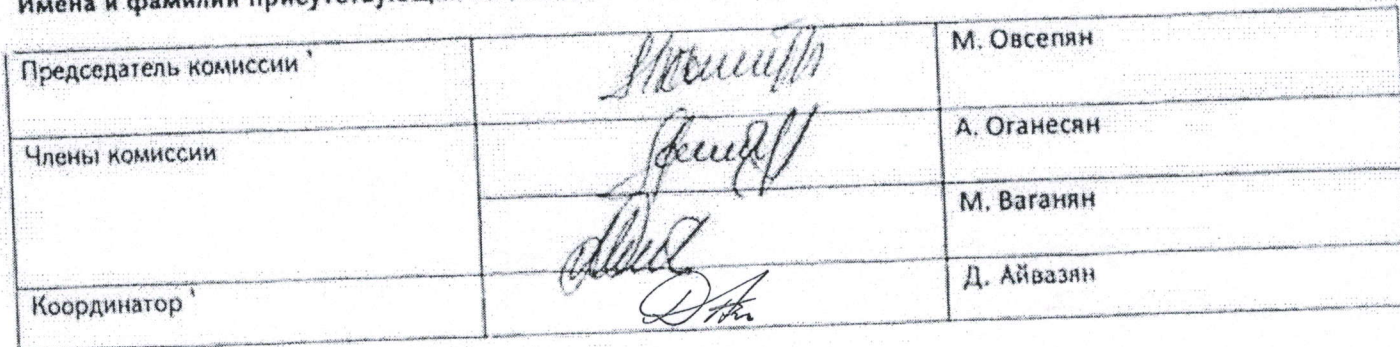 Имена и фамилии
Председатель комиссии
М. Овсепян
Члены комиссии
А. Оганесян
М. Ваганян
Координатор
Д. Айвазян